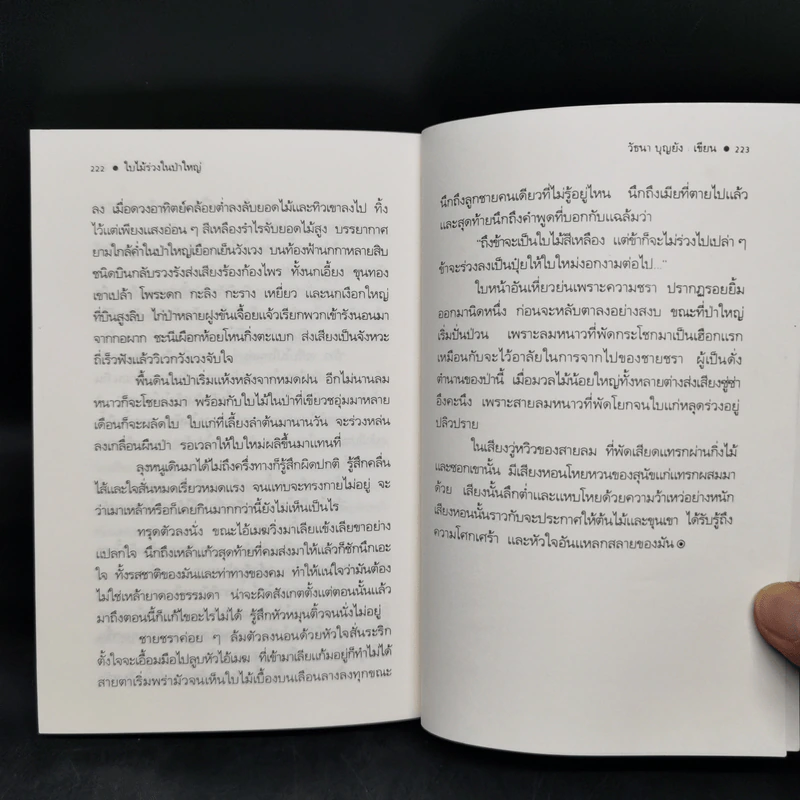 222 ● ใบไม้ร่วงในป่าใหญ่
ลง เมื่อดวงอาทิตย์คล้อยต่ำลงลับยอดไม้และทิวเขาลงไป ทิ้ง
ไว้แต่เพียงแสงอ่อน ๆ สีเหลืองรำไรจับยอดไม้สูง บรรยากาศ
ยามใกล้ค่ำในป่าใหญ่เยือกเย็นวังเวง บนท้องฟ้านกกาหลายสิบ
ชนิดบินกลับรวงรังส่งเสียงร้องก้องไพร ทั้งนกเอี้ยง ขุนทอง
เขาเปล้า โพระดก กะลิง กะราง เหยี่ยว และนกเงือกใหญ่
ที่บินสูงลิบ ไก่ป่าหลายฝูงขันเจื้อยแจ้วเรียกพวกเข้ารังนอนมา
จากกอผาก ชะนีเผือกห้อยโหนกิ่งตะแบก ส่งเสียงเป็นจังหวะ
ถี่เร็วฟังแล้ววิเวกวังเวงจับใจ
พื้นดินในป่าเริ่มแห้งหลังจากหมดฝน อีกไม่นานลม
หนาวก็จะโชยลงมา พร้อมกับใบไม้ในป่าที่เขียวชอุ่มมาหลาย
เดือนก็จะผลัดใบ ใบแก่ที่เลี้ยงลำต้นมานานวัน จะร่วงหล่น
ลงเกลื่อนผืนป่า รอเวลาให้ใบใหม่ผลิขึ้นมาแทนที่
ลุงหนูเดินมาได้ไม่ถึงครึ่งทางก็รู้สึกผิดปกติ รู้สึกคลื่น
ไส้และใจสั่นหมดเรี่ยวหมดแรง จนแทบจะทรงกายไม่อยู่ จะ
ว่าเมาเหล้าหรือก็เคยกินมากกว่านี้ยังไม่เห็นเป็นไร
ทรุดตัวลงนั่ง ขณะไอ้เมฆวิ่งมาเลียแข้งเลียขาอย่าง
แปลกใจ นึกถึงเหล้าแก้วสุดท้ายที่คมส่งมาให้แล้วก็ชักนึกเอะ
ใจ ทั้งรสชาติของมันและท่าทางของคม ทำให้แน่ใจว่ามันต้อง
ไม่ใช่เหล้ายาดองธรรมดา น่าจะผิดสังเกตตั้งแต่ตอนนั้นแล้ว
มาถึงตอนนี้ก็แก้ไขอะไรไม่ได้ รู้สึกหัวหมุนติ้วจนนั่งไม่อยู่
ชายชราค่อย ๆ ล้มตัวลงนอนด้วยหัวใจสั่นระริก
ตั้งใจจะเอื้อมมือไปลูบหัวไอ้เมฆ ที่เข้ามาเลียแก้มอยู่ก็ทำไม่ได้
สายตาเริ่มพร่ามัวจนเห็นใบไม้เบื้องบนเลือนลางลงทุกขณะ
วัธนา บุญยัง : เขียน ● 223
นึกถึงลูกชายคนเดียวที่ไม่รู้อยู่ไหน นึกถึงเมียที่ตายไปแล้ว
และสุดท้ายนึกถึงคำพูดที่บอกกับแฉล้มว่า
“ถึงข้าจะเป็นใบไม้สีเหลือง แต่ข้าก็จะไม่ร่วงไปเปล่า ๆ
ข้าจะร่วงลงเป็นปุ๋ยให้ใบใหม่งอกงามต่อไป...”
ใบหน้าอันเหี่ยวย่นเพราะความชรา ปรากฏรอยยิ้ม
ออกมานิดหนึ่ง ก่อนจะหลับตาลงอย่างสงบ ขณะที่ป่าใหญ่
เริ่มปั่นป่วน เพราะลมหนาวที่พัดกระโชกมาเป็นเฮือกแรก
เหมือนกับจะไว้อาลัยในการจากไปของชายชรา ผู้เป็นดั่ง
ตำนานของป่านี้ เมื่อมวลไม้น้อยใหญ่ทั้งหลายต่างส่งเสียงซู่ซ่า
อึงคะนึง เพราะสายลมหนาวที่พัดโยกจนใบแก่หลุดร่วงอยู่
ปลิวปราย
ในเสียงวู่หวิวของสายลม ที่พัดเสียดแทรกผ่านกิ่งไม้
และซอกเขานั้น มีเสียงหอนโหยหวนของสุนัขแก่แทรกผสมมา
ด้วย เสียงนั้นลึกต่ำและแหบโหยด้วยความว้าเหว่อย่างหนัก
เสียงหอนนั้นราวกับจะประกาศให้ต้นไม้และขุนเขา ได้รับรู้ถึง
ความโศกเศร้า และหัวใจอันแหลกสลายของมัน